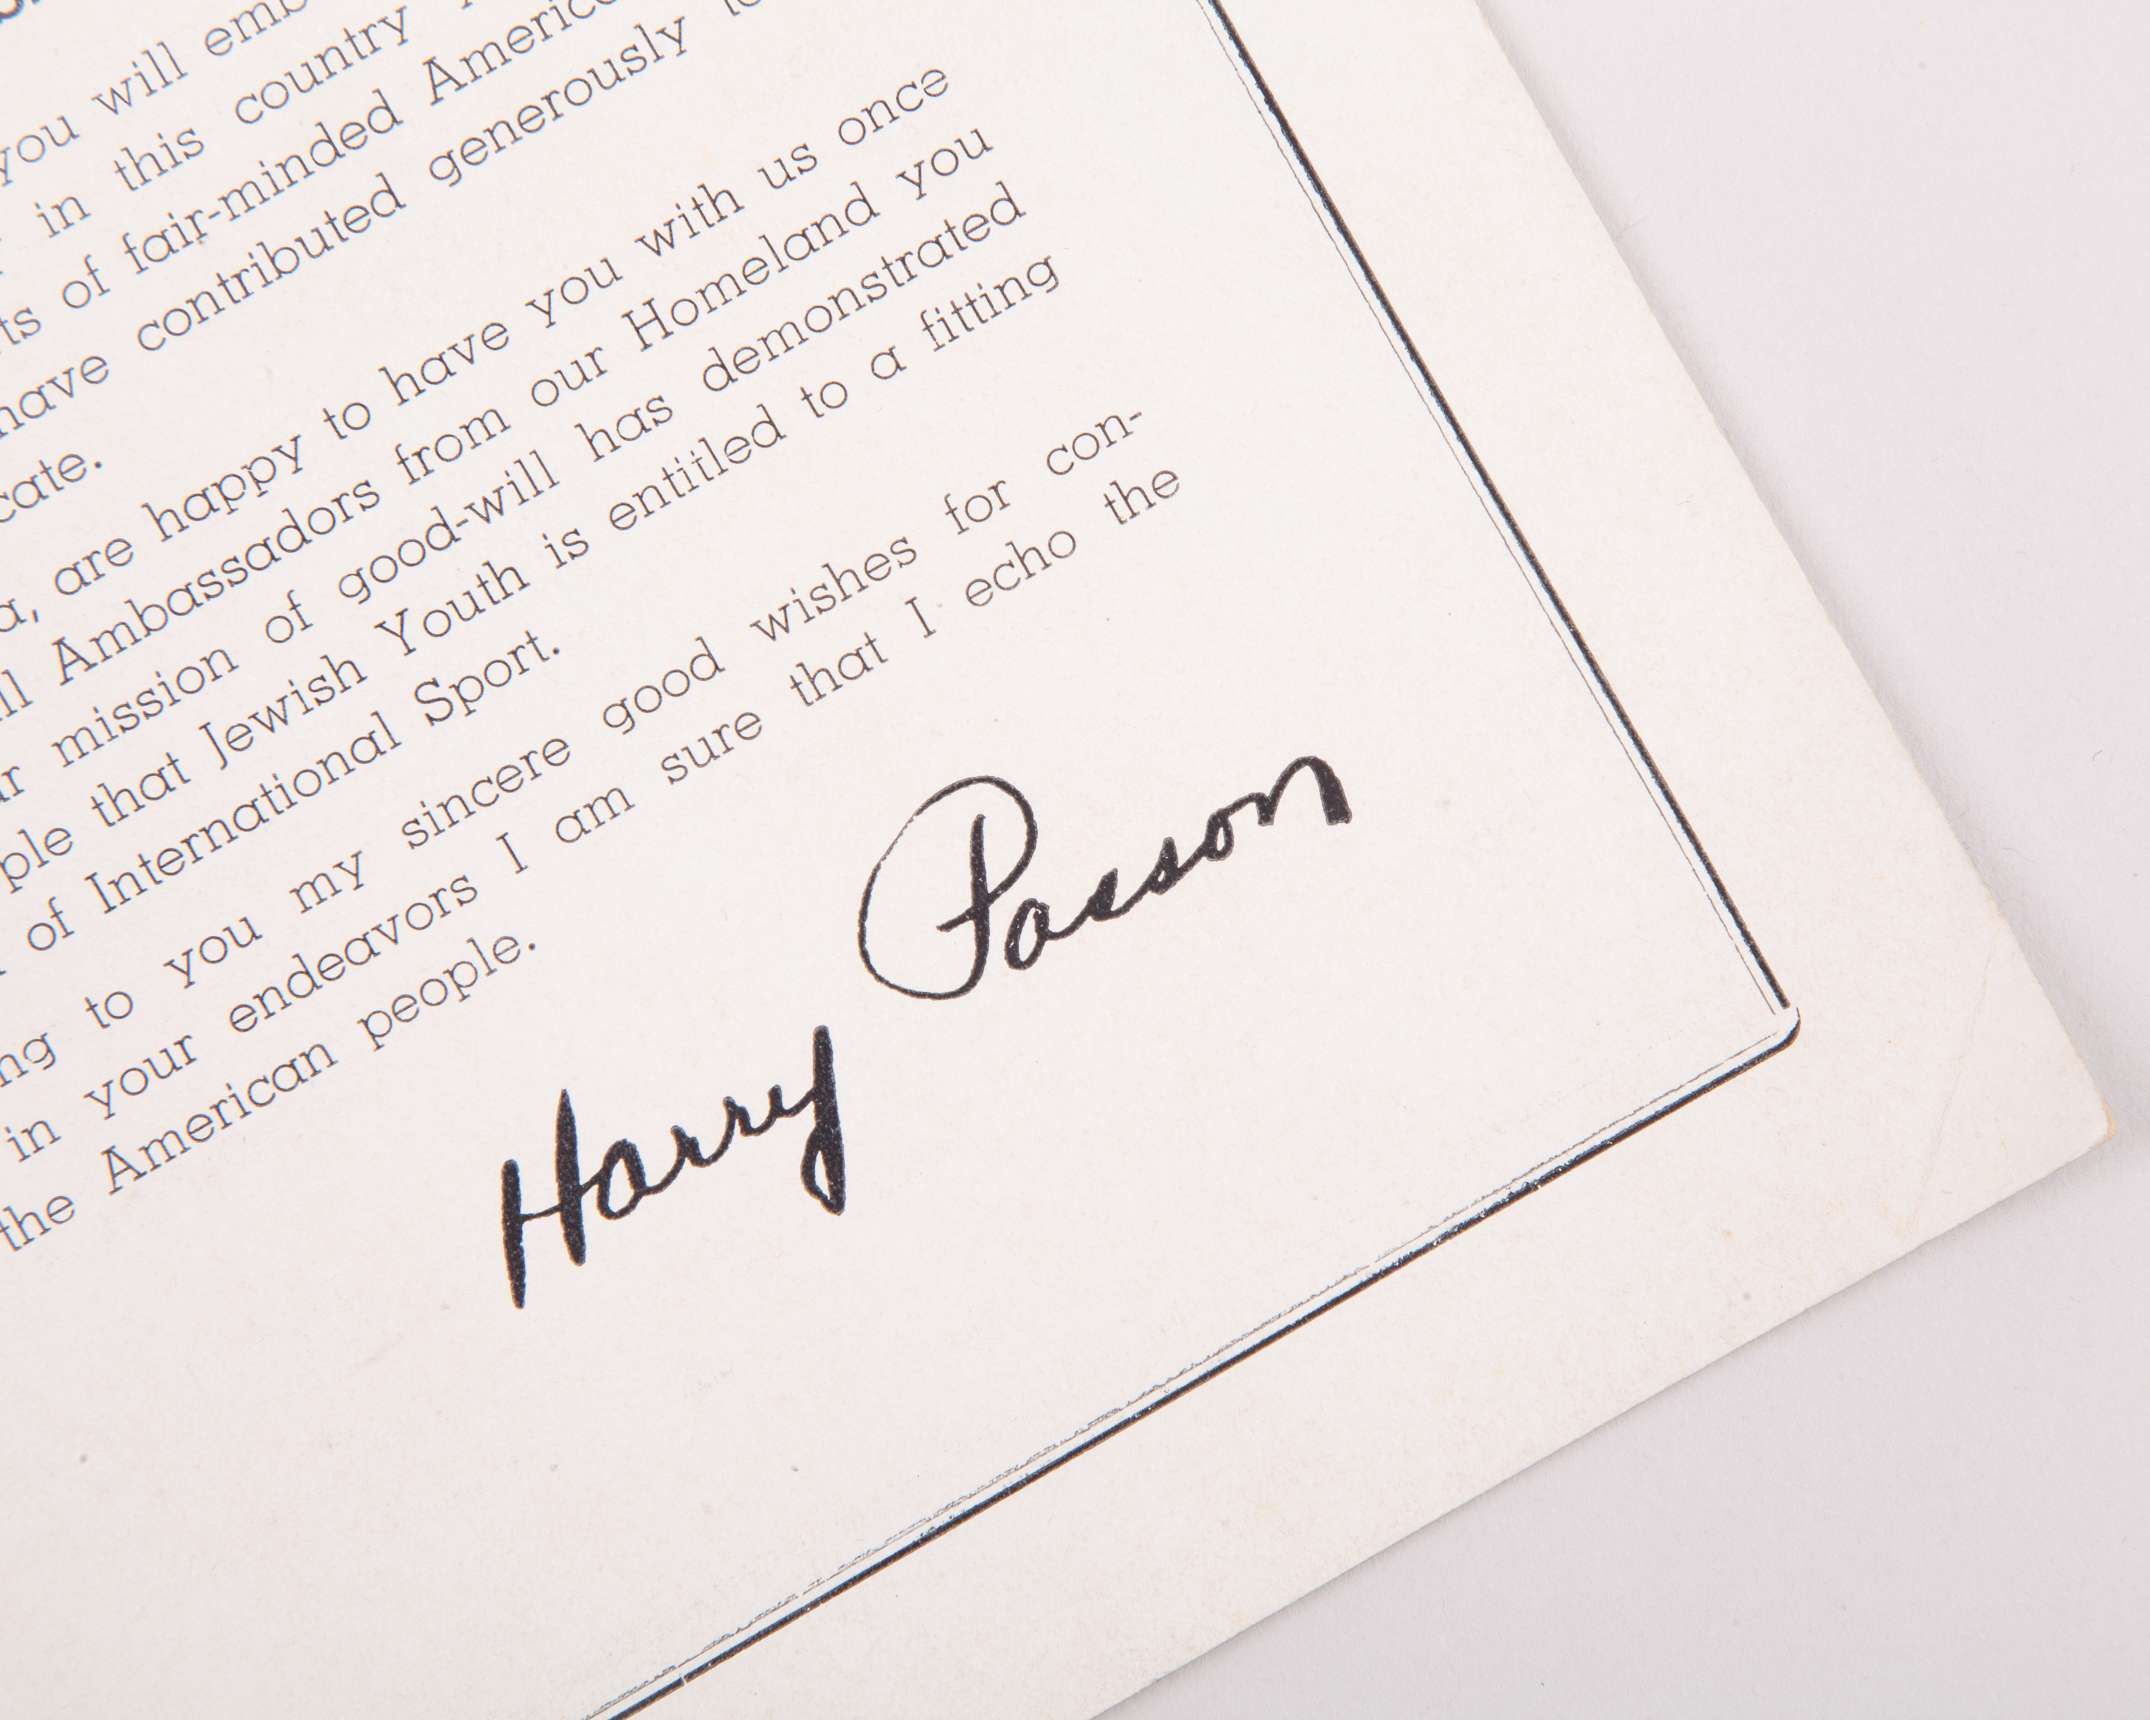 you will
in this country
of fair-minded
have contributed generously
are happy to have you with us once
Ambassadors from our Homeland you
mission of good-will has demonstrated
that Jewish Youth is entitled to a fitting
of International Sport.
to you my sincere good wishes for con-
in your endeavors I am sure that I echo the
the American people.
Harry Passon